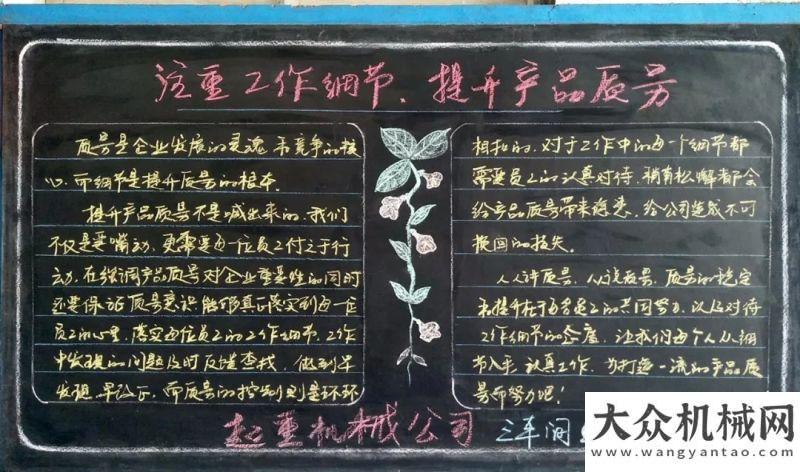 注重工作细节、提升产品质量
质量是企业发展的灵魂和竞争的核
心,而细节是提升质量的根本。
提升产品质量不是喊出来的,我们
不仅是要嘴动,更需要每一位员工付之于行
动,在强调产品质量对企业重要性的同时
还要保证质量意识能够真正落实到每一位
员工的心里,落实每位员工的工作细节,工作
中发现的问题及时反馈查找,做到早
发现、早改正,而质量的控制则是环环
相扣的,对于工作中的每一个细节都
需要员工的认真对待,稍有松懈都会
给产品质量带来隐患,给公司造成不可
挽回的损失。
人人讲质量,人人说质量,质量的稳定
和提升在于每名员工的共同努力,以及对待
工作细节的态度,让我们每个人从细
节入手,认真工作,为打造一流的产品质
量而努力吧!
起重机械公司 三车间
大众机械网
www.wangyantao.com